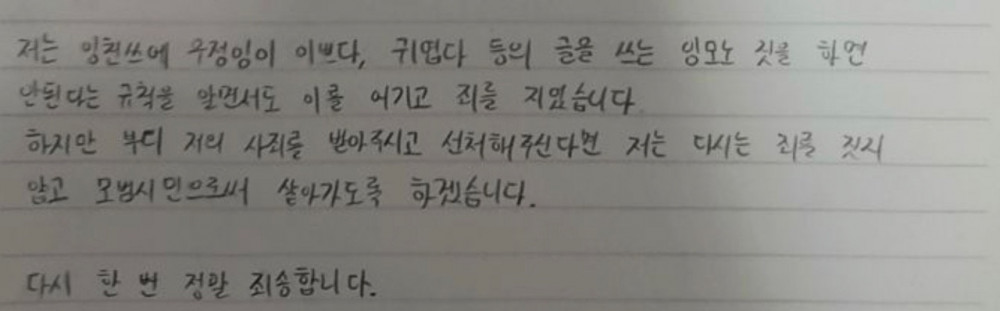 저는 잉친쓰에 우정잉이 이쁘다, 귀엽다 등의 글을 쓰는 잉모노 짓을 하면
안된다는 규칙을 알면서도 이를 어기고 죄를 지었습니다.
하지만 부디 저의 사죄를 받아주시고 선처해주신다면 저는 다시는 죄를 짓지
않고 모범시민으로써 살아가도록 하겠습니다.
다시 한 번 정말 죄송합니다.